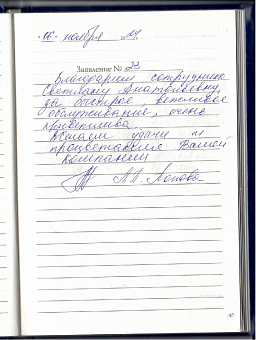 ноября
Заявление №
Благодарим сотрудник
Светлану Анатольевну,
за быстрое, вежливое
обслуживание, очень
приветлива.
Желаем удачи и
процветания Вашей
компании